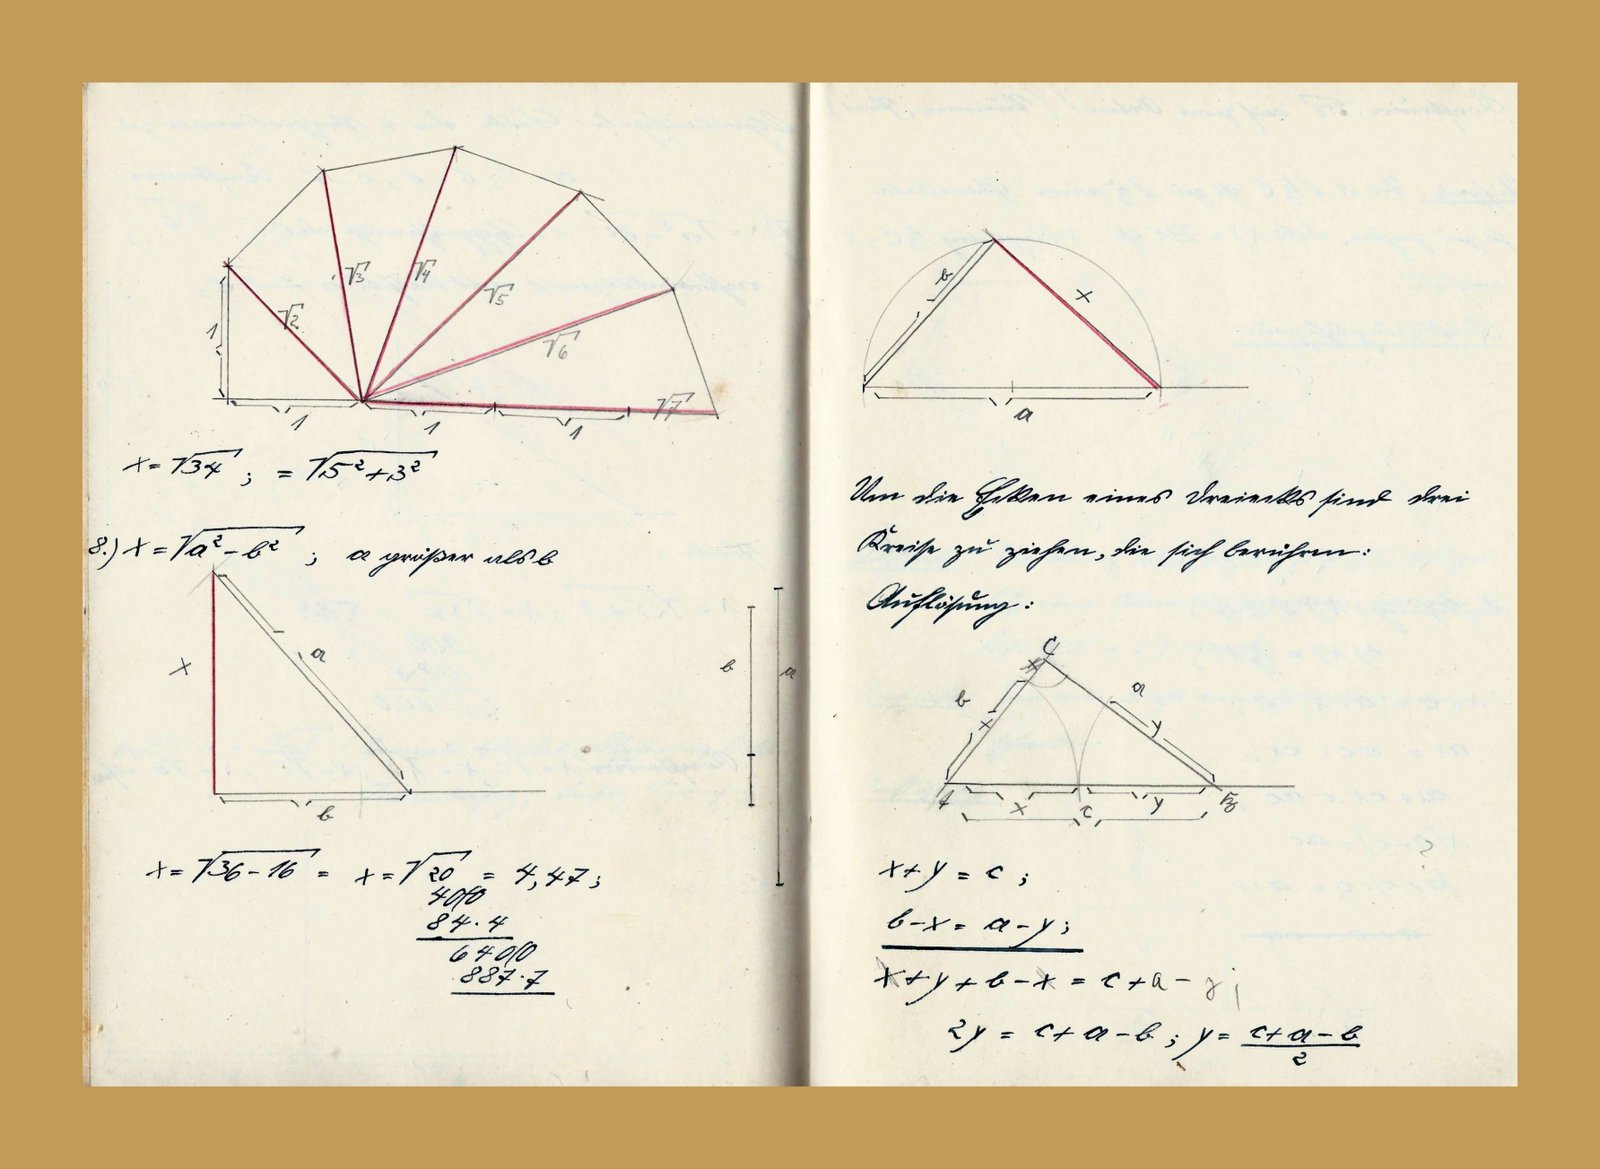 1
√2
√3
√4
√5
√6
√7
1
1
1
x = √34 ; = √5² + 3²
8.) x = √a² – b² ; a größer als b
x
a
b
b
a
x = √36 – 16 = x = √20 = 4,47;
400
84 . 4
6400
887 . 7
b
x
a
Um die Ecken eines Dreiecks sind drei
Kreise zu ziehen, die sich berühren:
Auflösung:
C
b
x
a
y
A
x
c
y
B
x + y = c ;
b – x = a – y ;
x + y + b – x = c + a – y ;
2y = c + a – b ; y = c + a – b
2